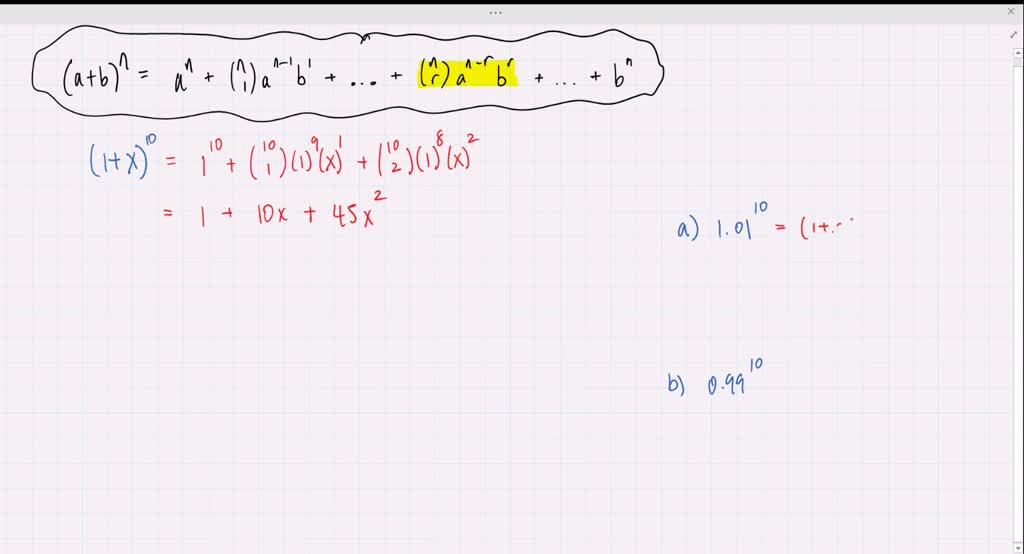 (a+b)^n = a^n + (n 1) a^{n-1} b^1 + ... + (n r) a^{n-r} b^r + ... + b^n
(1+x)^10 = 1^10 + (10 1)(1)^9 (x)^1 + (10 2)(1)^8 (x)^2
= 1 + 10x + 45x^2
a) 1.01^10 = (1+.
b) 0.99^10